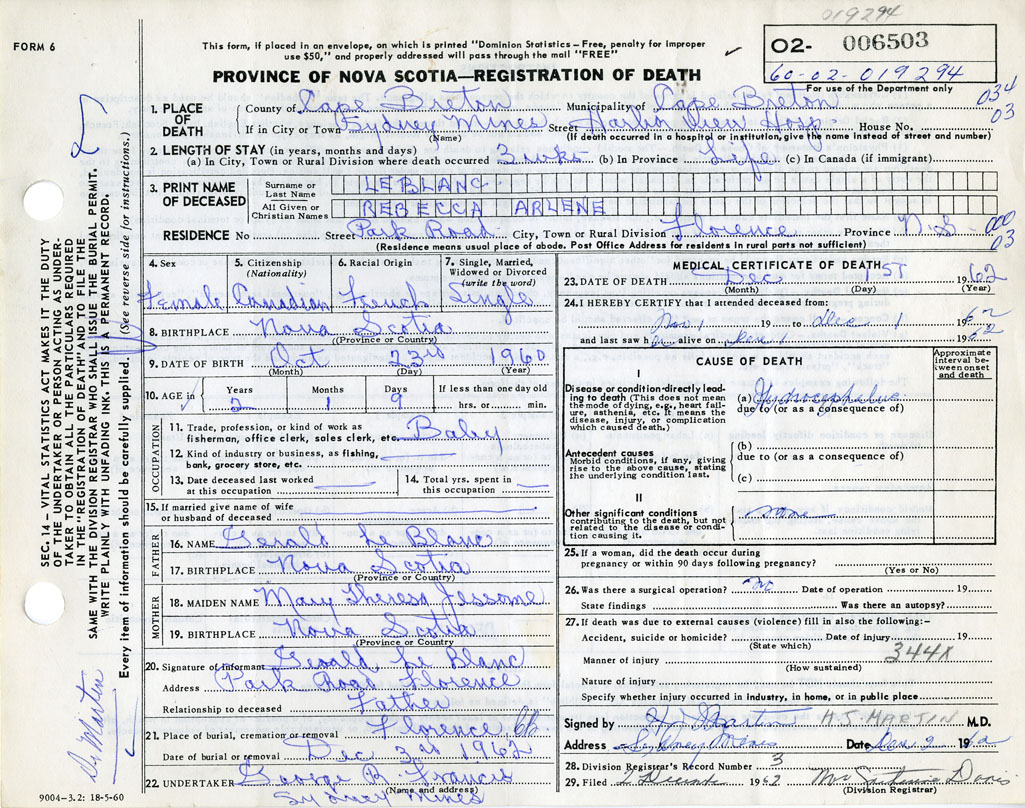 019294
FORM 6
This form, if placed in an envelope, on which is printed "Dominion Statistics—Free, penalty for improper
use $50," and properly addressed will pass through the mail "FREE"
O2- 006503
60-02-019294
For use of the Department only
PROVINCE OF NOVA SCOTIA—REGISTRATION OF DEATH
034
03
1. PLACE OF DEATH
County of Cape Breton Municipality of Cape Breton
If in City or Town Sydney Mines Street Harbor View Hosp. House No.
(Name) (If death occurred in a hospital or institution, give the name instead of street and number)
2. LENGTH OF STAY (in years, months and days)
(a) In City, Town or Rural Division where death occurred 3 wks (b) In Province Life (c) In Canada (if immigrant)
3. PRINT NAME OF DECEASED
Surname or Last Name LEBLANC
All Given or Christian Names REBECCA ARLENE
RESIDENCE No Street Park Road City, Town or Rural Division Florence Province N.S. 000
03
(Residence means usual place of abode. Post Office Address for residents in rural parts not sufficient)
4. Sex 5. Citizenship (Nationality) 6. Racial Origin 7. Single, Married, Widowed or Divorced (write the word)
Female Canadian French Single
8. BIRTHPLACE Nova Scotia
(Province or Country)
9. DATE OF BIRTH Oct 23rd 1960
(Month) (Day) (Year)
10. AGE in Years Months Days If less than one day old
2 1 9 hrs. or min.
OCCUPATION
11. Trade, profession, or kind of work as
fisherman, office clerk, sales clerk, etc. Baby
12. Kind of industry or business, as fishing,
bank, grocery store, etc.
13. Date deceased last worked at this occupation
14. Total yrs. spent in this occupation
15. If married give name of wife
or husband of deceased
FATHER
16. NAME Gerald Le Blanc
17. BIRTHPLACE Nova Scotia
(Province or Country)
MOTHER
18. MAIDEN NAME Mary Theresa Jessome
19. BIRTHPLACE Nova Scotia
(Province or Country)
20. Signature of Informant Gerald Le Blanc
Address Park Road Florence
Relationship to deceased Father
21. Place of burial, cremation or removal Florence CB.
Date of burial or removal Dec 3rd 1962
22. UNDERTAKER George R. Francis
(Name and address)
Sydney Mines
9004—3.2: 18-5-60
MEDICAL CERTIFICATE OF DEATH
23. DATE OF DEATH Dec 1ST 1962
(Month) (Day) (Year)
24. I HEREBY CERTIFY that I attended deceased from:
Nov 1 19 to Dec 1 1962
and last saw h alive on Dec 1 1962
CAUSE OF DEATH
Approximate interval between onset and death
I
Disease or condition directly leading to death (This does not mean
the mode of dying, e.g., heart failure, asthenia, etc. It means the
disease, injury, or complication
which caused death.)
(a) Hydrocephalus
due to (or as a consequence of)
Antecedent causes
Morbid conditions, if any, giving
rise to the above cause, stating
the underlying condition last.
(b)
due to (or as a consequence of)
(c)
II
Other significant conditions
contributing to the death, but not
related to the disease or condition causing it.
none
25. If a woman, did the death occur during
pregnancy or within 90 days following pregnancy?
(Yes or No)
26. Was there a surgical operation? no Date of operation 19
State findings Was there an autopsy?
27. If death was due to external causes (violence) fill in also the following:—
Accident, suicide or homicide? Date of injury 19
(State which)
344X
Manner of injury
(How sustained)
Nature of injury
Specify whether injury occurred in industry, in home, or in public place
Signed by H. J. Martin H.J. MARTIN M.D.
Address Sydney Mines Date Dec 2 1962
28. Division Registrar's Record Number 3
29. Filed 2 1962 Davis
(Division Registrar)
SEC. 14—VITAL STATISTICS ACT, MAKES IT THE DUTY
OF THE UNDERTAKER OR PERSON ACTING AS UNDERTAKER TO OBTAIN ALL THE PARTICULARS REQUIRED
IN THE "REGISTRATION OF DEATH" AND TO FILE THE
SAME WITH THE DIVISION REGISTRAR WHO SHALL ISSUE THE BURIAL PERMIT.
WRITE PLAINLY WITH UNFADING INK. THIS IS A PERMANENT RECORD.
Every item of information should be carefully supplied. (See reverse side for instructions.)
Dr Martin